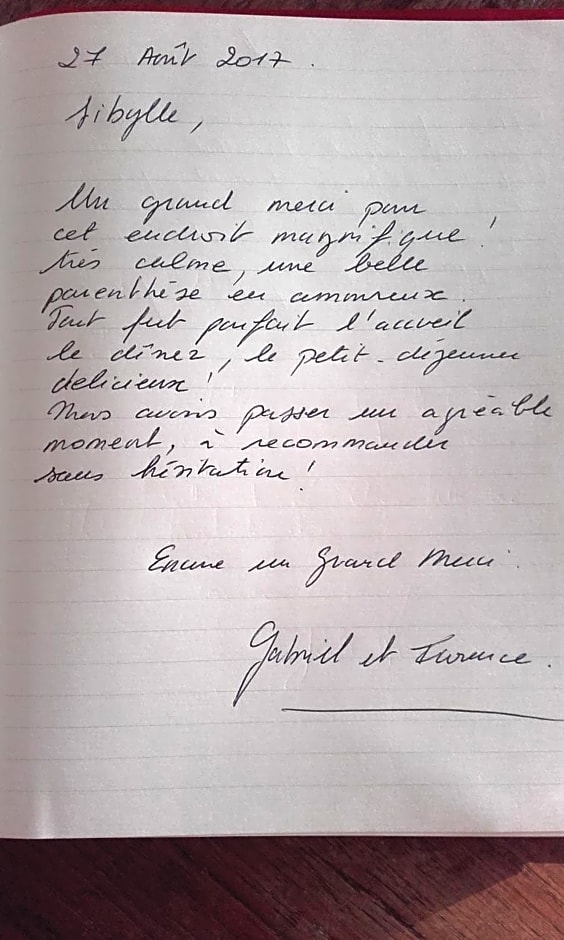 27 Août 2017.
Sibylle,
Un grand merci pour
cet endroit magnifique !
très calme, une belle
parenthèse en amoureux.
Tout fut parfait l'accueil
le dîner, le petit-déjeuner
delicieux !
Nous avons passer un agréable
moment, à recommander
sans hésitation !
Encore un grand merci.
Gabriel et Florence.